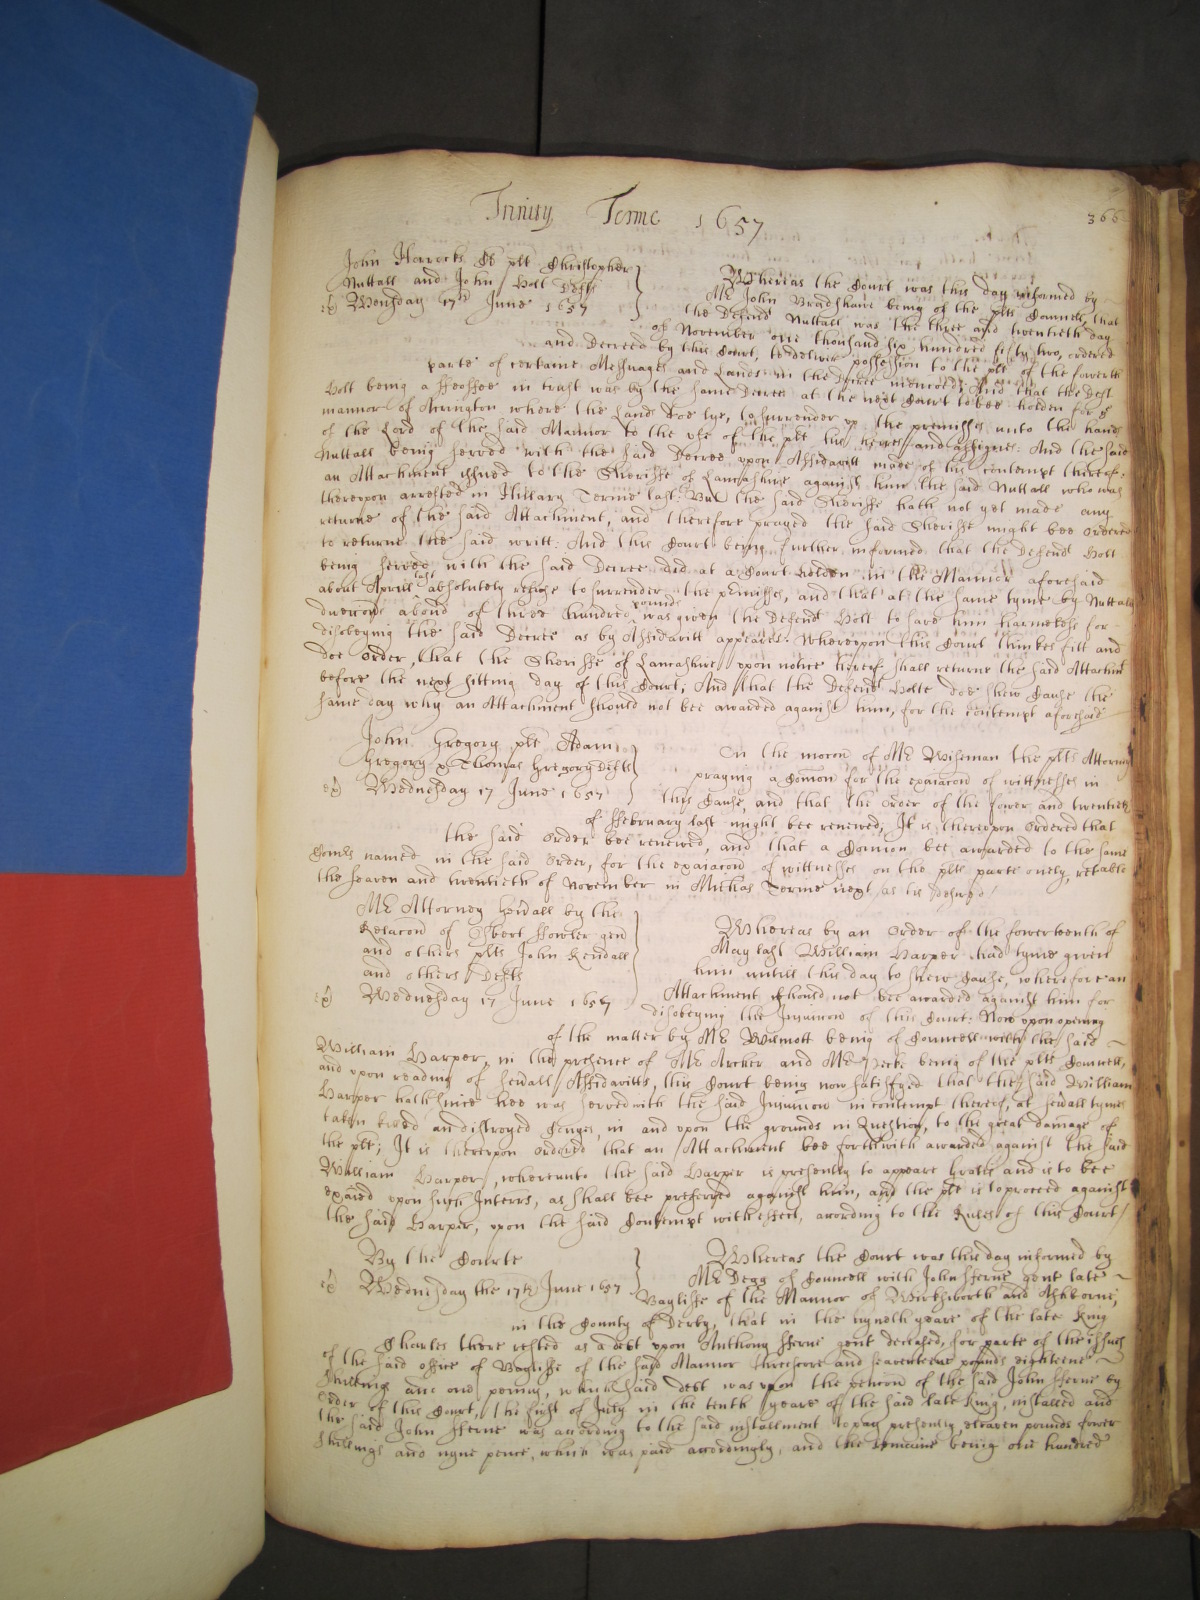 Trinity Terme 1657
366
John Horrocks plt Christopher
Nuttall and John Holt Defts
Wensday 17th June 1657
Whereas the Court was this day informed by
Mr John Bradshawe being of the plts Councell, that
the Defend Nuttall was the three and twentieth day
of November one thousand six hundred fifty two, ordered
and decreed by this Court, to deliver possession to the plt of the fowerth
parte of certaine Messuages and Lands in the Decree menconed; And that the Deft
Holt being a ffeoffee in trust was by the same Decree at the next Court to bee holden for the
mannor of Accington where the Land doe lye, to surrender up the premisses unto the hands
of the Lord of the said Mannor to the use of the plt his heires and assignes: And the said
Nuttall being served with the said Decree upon Affidavitt made of his contempt thereof:
an Attachment issued to the Sheriffe of Lancashire against him the said Nuttall who was
thereupon arrested in Hillary Terme last: But the said Sheriffe hath not yet made any
returne of the said Attachment, and therefore prayed the said Sheriffe might bee ordered
to returne the said writt: And this Court being further informed that the Defend Holt
being served with the said Decree did at a Court holden in the Mannor aforesaid
about Aprill last absolutely refuse to surrender the premisses, and that at the same tyme by Nuttalls
direccon a bond of three hundred pounds was given the Defend Holt to save him harmelesse for
disobeying the said Decree as by Affidavitt appeares: Whereupon this Court thinkes fitt and
doe order, that the Sheriffe of Lancashire upon notice hereof shall returne the said Attachmt
before the next sitting day of this Court; And that the Defend Holte doe shew Cause the
same day why an Attachment should not bee awarded against him, for the contempt aforesaid
John Gregory plt Adam
Gregory & Thomas Gregory Defts
Wednesday 17 June 1657
On the mocon of Mr Wiseman the plts Attorney
praying a Comon for the examacon of wittnesses in
this Cause, and that the order of the fower and twentieth
of ffebruary last might bee renewed; It is thereupon ordered that
the said order bee renewed, and that a Comion bee awarded to the same
Comrs named in the said order, for the examacon of wittnesses on the plts parte onely, retable
the seaven and twentieth of November in Michas Terme next as is desired
Mr Attorney Genall by the
Relacon of ffowler gen
and others plts John Kendall
and others Defts
Wednesday 17 June 1657
Whereas by an order of the fowerteenth of
May last William Harper had tyme given
him untill this day to shew Cause, wherefore an
Attachment should not bee awarded against him for
disobeying the Injunccon of this Court: Now upon opening
of the matter by Mr Wilmott being of Councell with the said
William Harper, in the presence of Mr Archer and Mr Pecke being of the plts Councell,
and upon reading of sevall Affidavitts, this Court being now satisfyed that the said William
Harper hath since hee was served with the said Injunccon in contempt thereof, at sevall tymes
taken and distroyed Conyes, in and upon the grounds in Question, to the great damage of
the plt; It is thereupon ordered that an Attachment bee forthwith awarded against the said
William Harper, whereunto the said Harper is presently to appeare gratis and is to bee
exaied upon such Interrs, as shall bee preferred against him, and the plt is to proceed against
the said Harper, upon the said Contempt with effect, according to the Rules of this Court
By the Courte
Wednesday the 17th June 1657
Whereas the Court was this day informed by
Mr Degg of Councell with John fferne gent late
Bayliffe of the Mannor of Wirksworth and Ashborne,
in the County of Derby, that in the nyneth yeare of the late King
Charles there rested as a debt upon Anthony fferne gent deceased, for parte of the issues
of the said office of Bayliffe of the said Mannor threescore and seaventeene pounds eighteene
shillings and one penny, which said debt was upon the peticon of the said John fferne by
order of this Court, the first of July in the tenth yeare of the said late King, installed and
the said John fferne was according to the said installment to pay presently, eleaven pounds fower
shillings and nyne pence, which was paid accordingly, and the remaine being one hundred